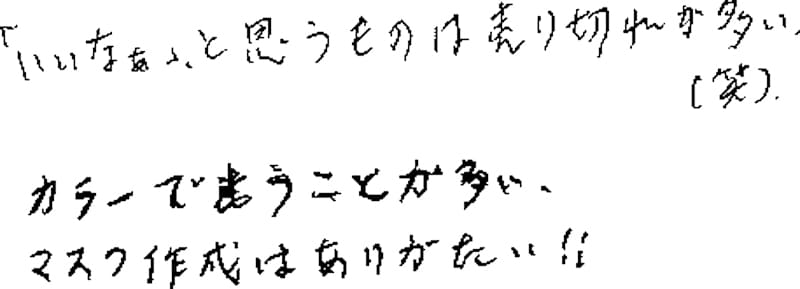 「いいなぁ」と思うものは売り切れが多い、
(笑).
カラーで ことが多い、
マスク作成はありがたい!!